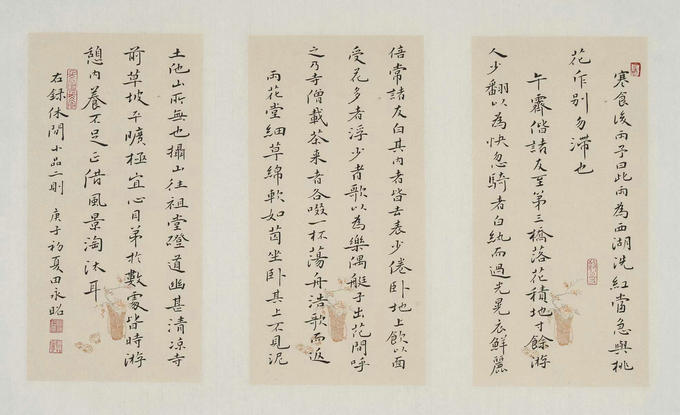 寒食後雨予曰此雨為西湖洗紅當急與桃
花作別勿滯也
午霽偕諸友至第三橋落花積地寸餘游
人少翻以為快忽騎者白紈而過光晃衣鮮麗
倍常諸友白其內者皆去表少倦臥地上飲以面
受花多者浮少者歌以為樂偶艇子出花間呼
之乃寺僧載茶來者各啜一杯蕩舟浩歌而返
雨花堂細草綿軟如茵坐臥其上不見泥
土他山所無也攝山往祖堂磴道幽甚清涼寺
前草坡平曠極宜心目第於數處皆時游
憩內養不足正借風景淘汰耳
右錄休閒小品二則 庚子初夏田永昭